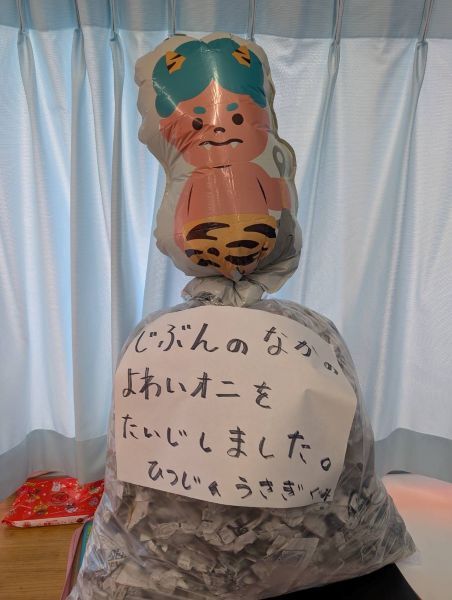 じぶんのなかの
よわいオニを
たいじしました。
ひつじ うさぎ